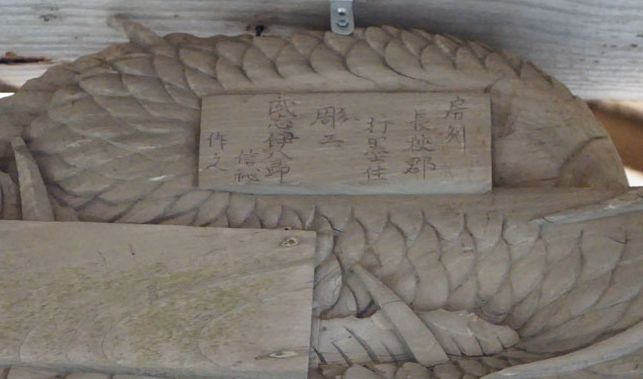 房州
長狭郡
打墨住
彫工
武志伊八郎
信秘
作之